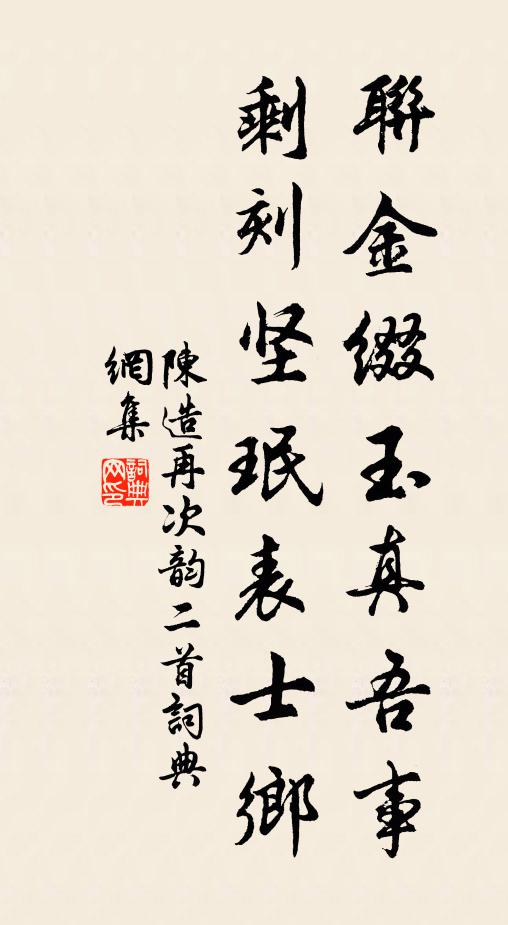 聯金綴玉真吾事
剩刻坚珉表士鄉
陳造再次韵二首詞典
網集
詞典网印